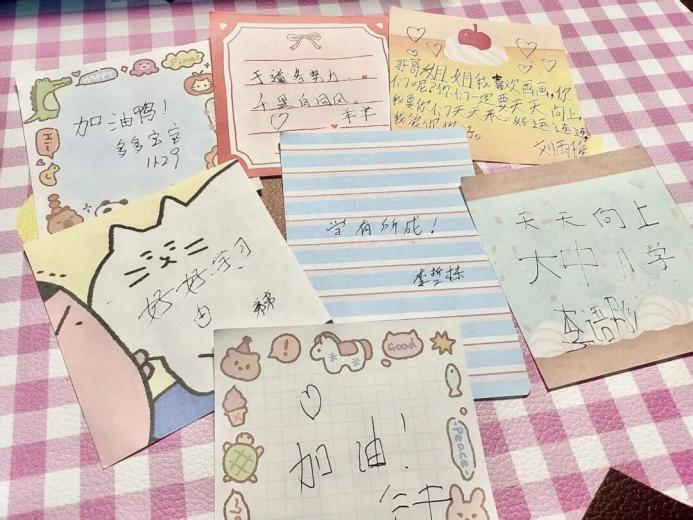 HAPPY
Fine!
Hi!
加油鸭!
多多宝宝
1129
天道酬勤
千里自同风。
羊羊
哥哥姐姐我喜欢画画,你
们呢?你们一定要天天向上,
我要你们天天开心好运连连,
我爱你们。
学有所成!
李哲栋
天天向上
大中小学
好好学习
Good
加油!
Peace